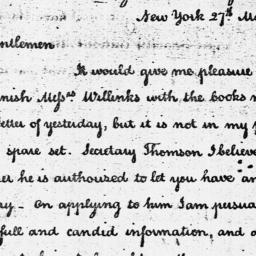 New York 27th Ma
entlemen
It would give me pleasure
nish Messrs Willinks with the books m
etter of yesterday, but it is not in my p
spare set. Secretary Thomson I believe
er he is authorized to let you have an
y - On applying to him I am persua
full and candid information, and a